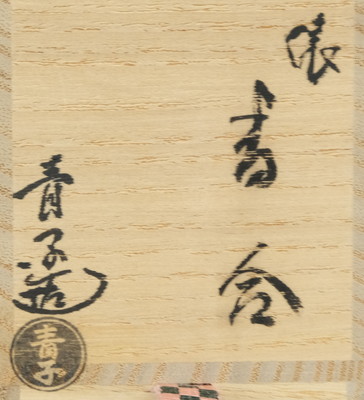 香合
青子造
青子